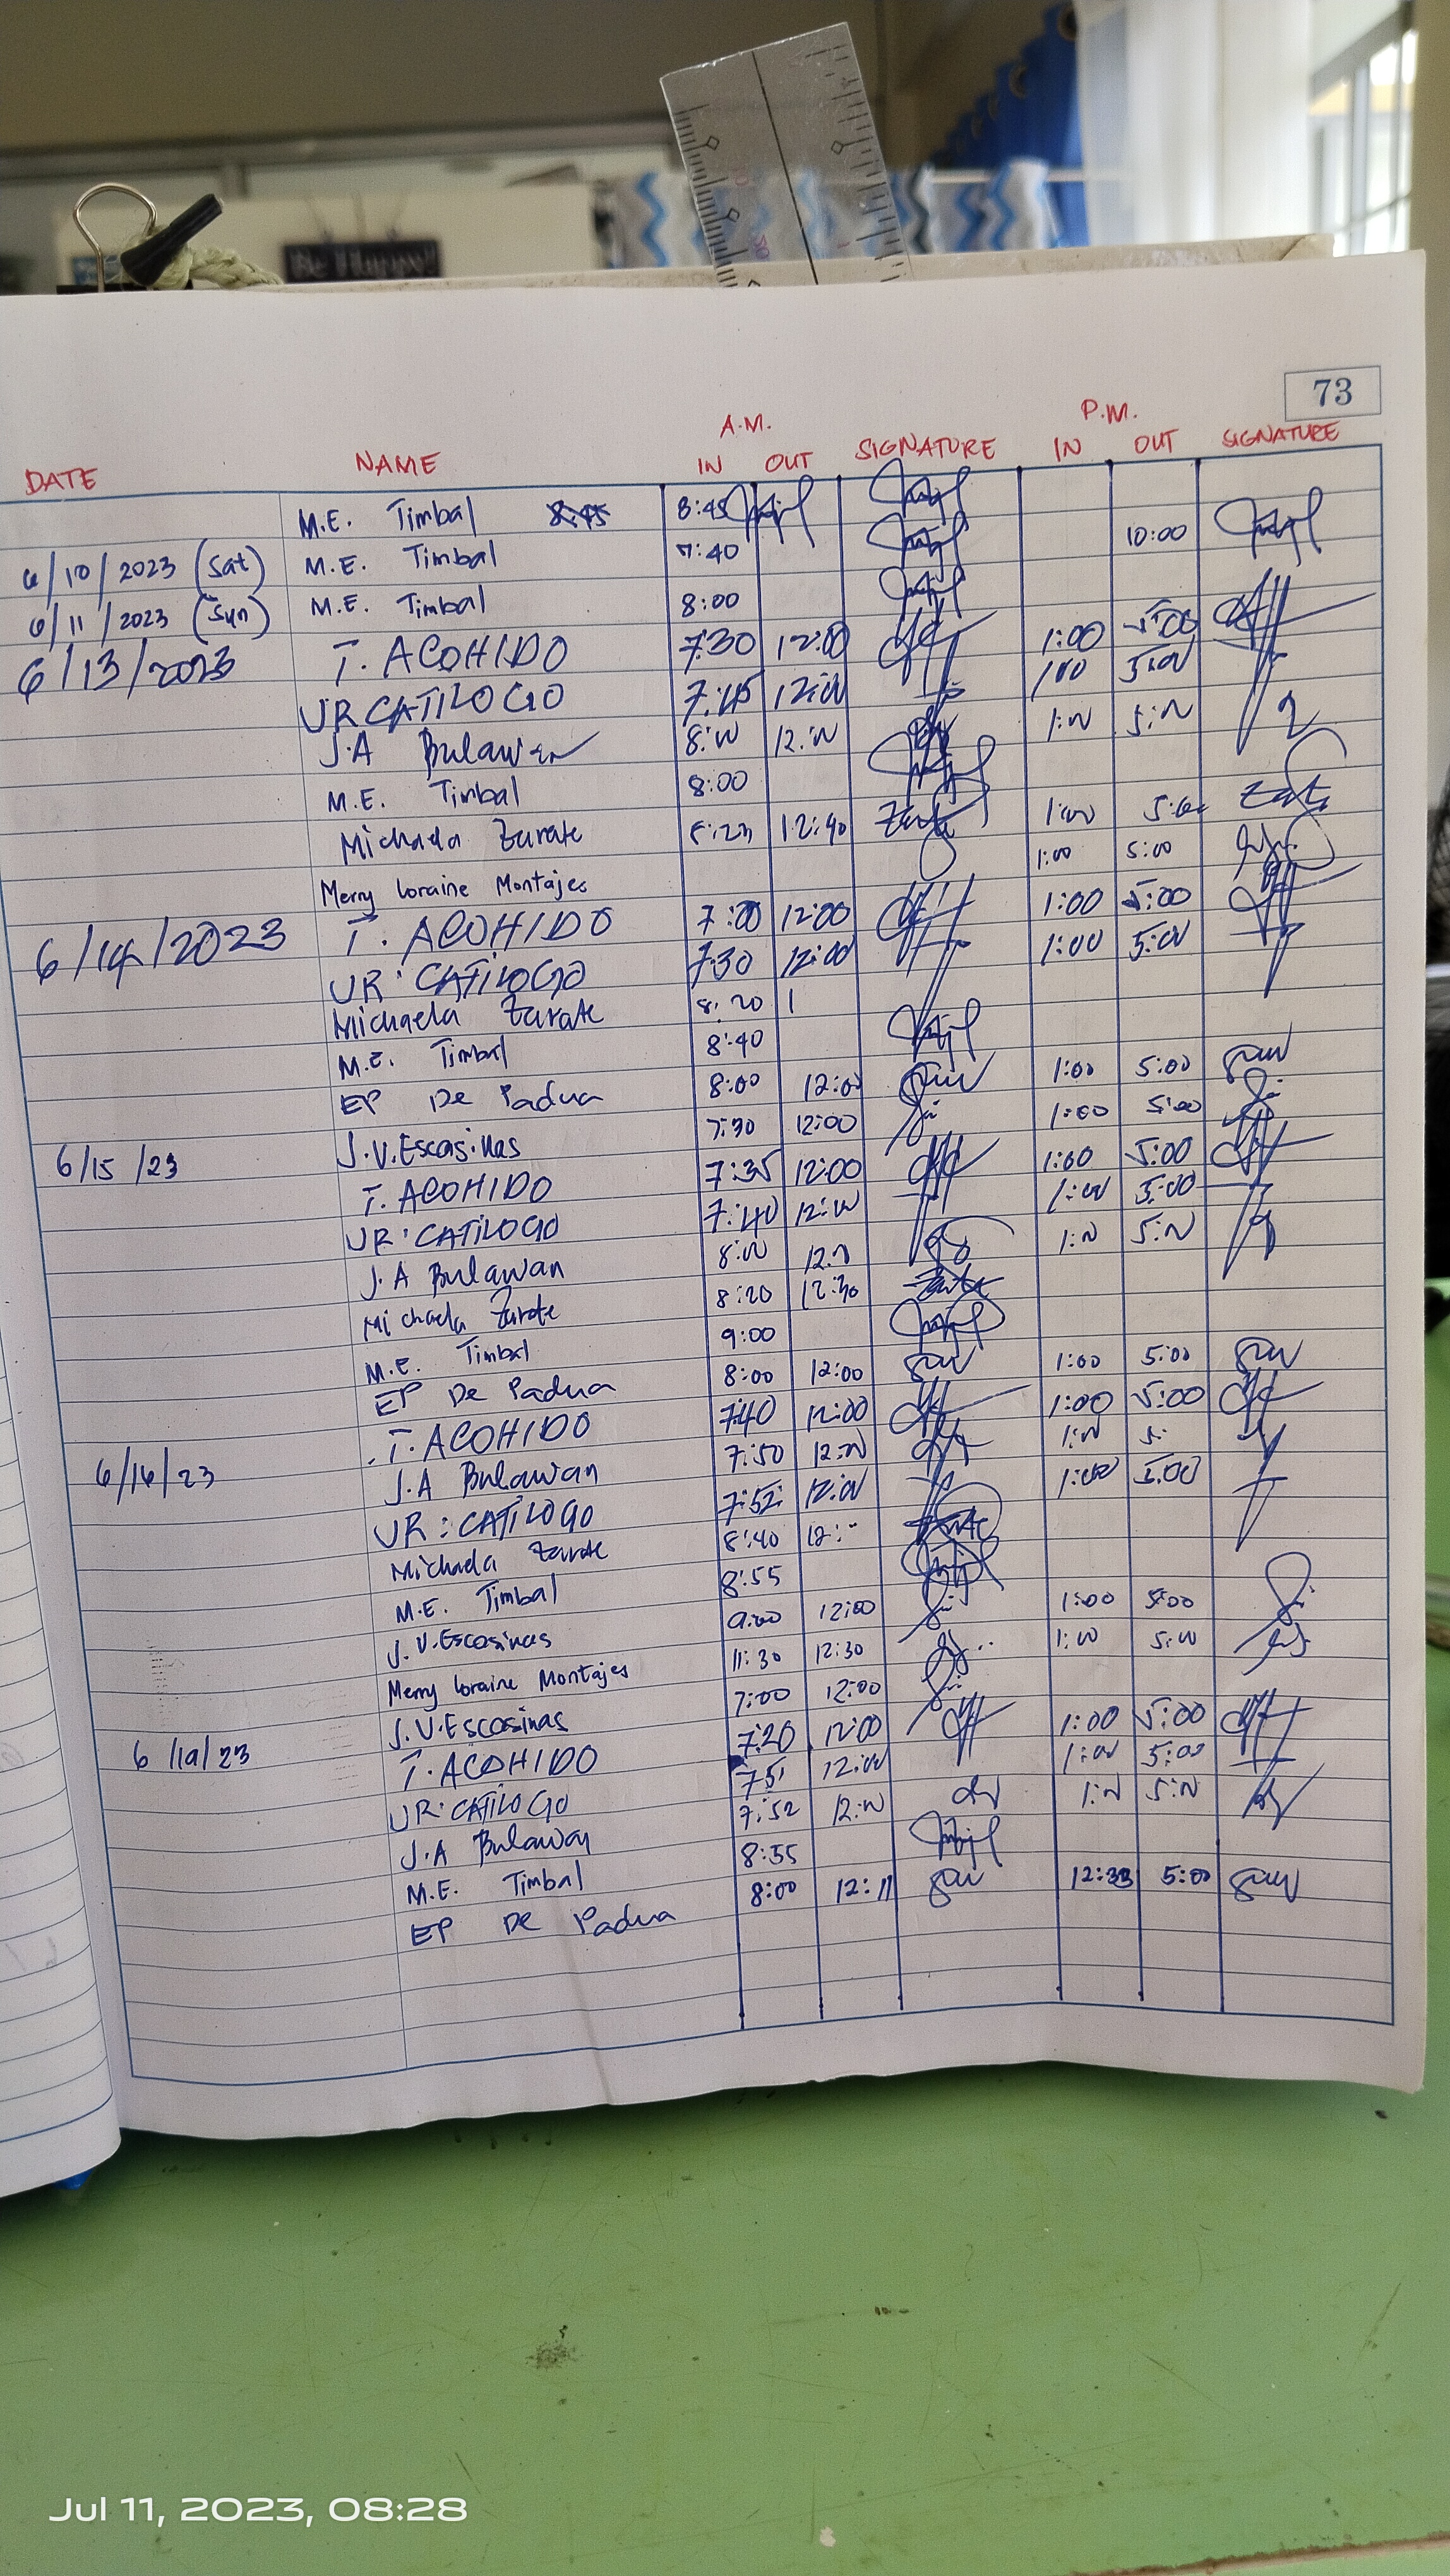 Be Happy!
73
A.M. P.M.
DATE NAME IN OUT SIGNATURE IN OUT SIGNATURE
M.E. Timbal 8:45 8:45
6/10/2023 (Sat) M.E. Timbal 7:40 10:00
6/11/2023 (Sun) M.E. Timbal 8:00
6/13/2023 T. ACOHIDO 7:30 12:00 1:00 5:00
UR CATILOGO 7:45 12:00 1:00 5:00
J.A Bulawan 8:00 12:00 1:00 5:00
M.E. Timbal 8:00
Michaela Zarate 8:23 12:40 1:00 5:00
Merry Loraine Montajes 1:00 5:00
6/14/2023 T. ACOHIDO 7:20 12:00 1:00 5:00
UR: CATILOGO 7:30 12:00 1:00 5:00
Michaela Zarate 8:20 1
M.E. Timbal 8:40
EP De Padua 8:00 12:00 1:00 5:00
6/15/23 J.V.Escasinas 7:30 12:00 1:00 5:00
T. ACOHIDO 7:35 12:00 1:00 5:00
UR: CATILOGO 7:40 12:00 1:00 5:00
J.A Bulawan 8:00 12:00 1:00 5:00
Michaela Zarate 8:20 12:30
M.E. Timbal 9:00
EP De Padua 8:00 12:00 1:00 5:00
6/16/23 T. ACOHIDO 7:40 12:00 1:00 5:00
J.A Bulawan 7:50 12:00 1:00 5:
UR: CATILOGO 7:52 12:00 1:00 5:00
Michaela Zarate 8:40 12:--
M.E. Timbal 8:55
J.V.Escosinas 9:00 12:00 1:00 5:00
Merry Loraine Montajes 11:30 12:30 1:00 5:00
6/19/23 J.V.Escosinas 7:00 12:00
T. ACOHIDO 7:20 12:00 1:00 5:00
UR: CATILOGO 7:51 12:00 1:00 5:00
J.A Bulawan 7:52 12:00 1:00 5:00
M.E. Timbal 8:55
EP De Padua 8:00 12:11 12:33 5:00
Jul 11, 2023, 08:28